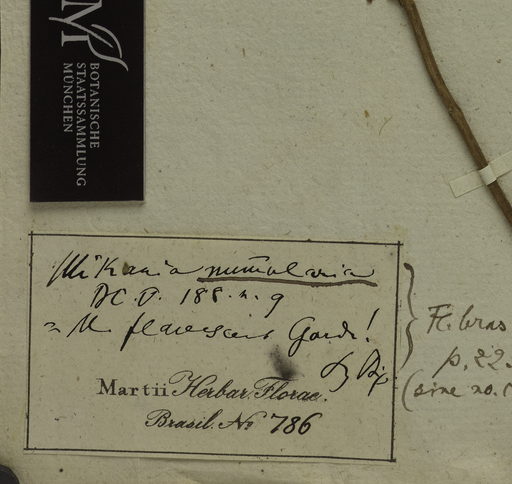 M
BOTANISCHE
STAATSSAMMLUNG
MÜNCHEN
Mikania nummularia
DC. P. 188. n. 9
= M. flavescens Gardn!
Martii Herbar. Florae.
Brasil. No 786
Fl. bras
p. 22
(sine no.